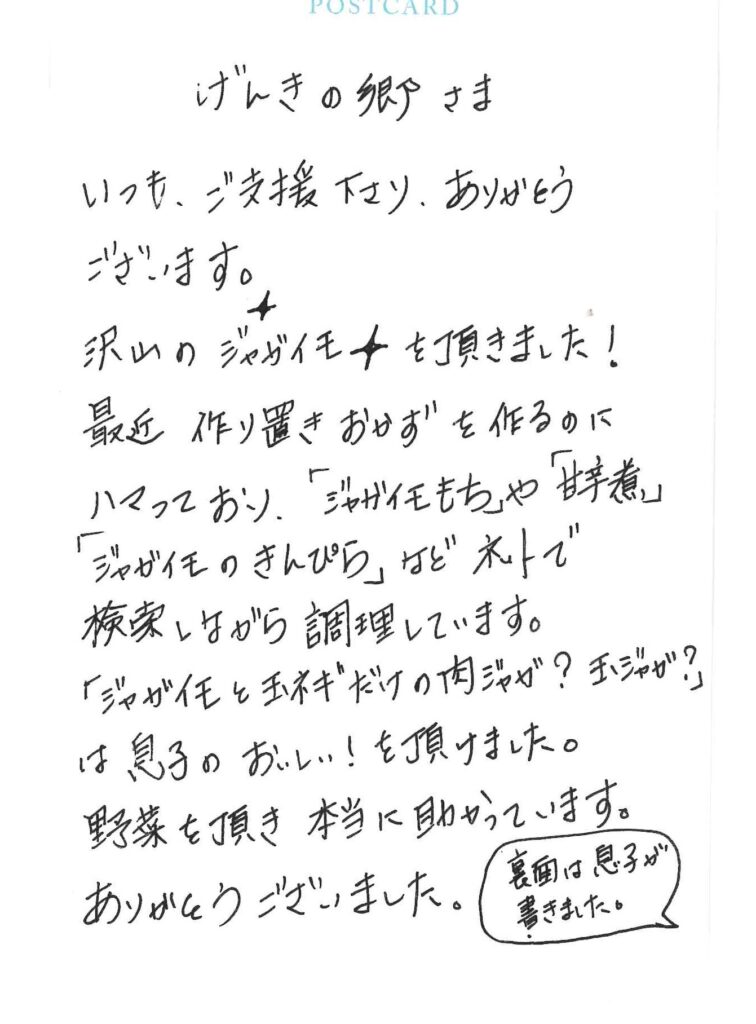 POSTCARD
げんきの郷 さま
いつも、ご支援 下さり、ありがとう
ございます。
沢山の ジャガイモ を頂きました！
最近 作り置きおかずを作るのに
ハマっており、「ジャガイモもち」や「甘辛煮」
「ジャガイモのきんぴら」など ネットで
検索しながら調理しています。
「ジャガイモと玉ネギだけの肉ジャガ？玉ジャガ？」
は息子の おいしい！を頂けました。
野菜を頂き 本当に助かっています。
ありがとうございました。
裏面は息子が
書きました。